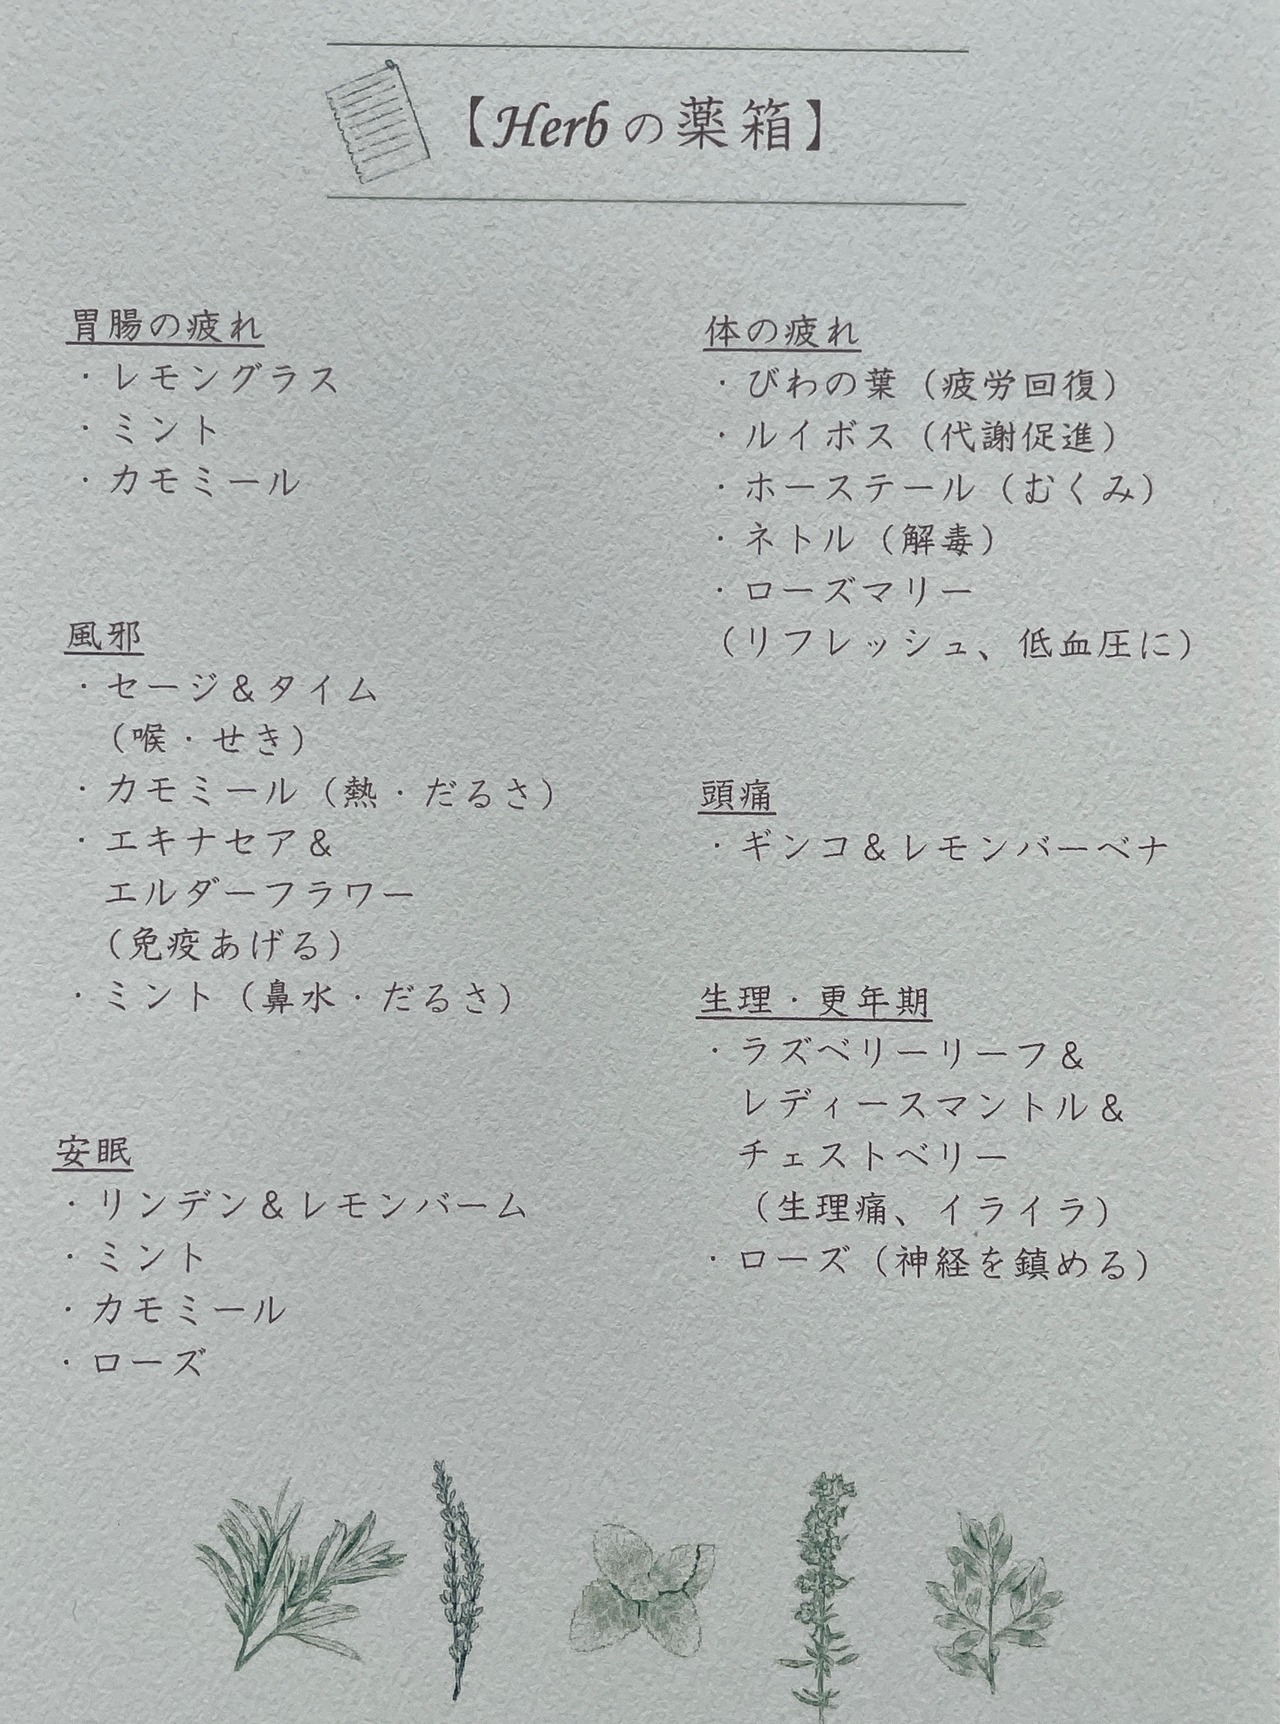 【Herbの薬箱】
胃腸の疲れ
・レモングラス
・ミント
・カモミール
風邪
・セージ＆タイム
（喉・せき）
・カモミール（熱・だるさ）
・エキナセア＆
エルダーフラワー
（免疫あげる）
・ミント（鼻水・だるさ）
安眠
・リンデン＆レモンバーム
・ミント
・カモミール
・ローズ
体の疲れ
・びわの葉（疲労回復）
・ルイボス（代謝促進）
・ホーステール（むくみ）
・ネトル（解毒）
・ローズマリー
（リフレッシュ、低血圧に）
頭痛
・ギンコ＆レモンバーベナ
生理・更年期
・ラズベリーリーフ＆
レディースマントル＆
チェストベリー
（生理痛、イライラ）
・ローズ（神経を鎮める）